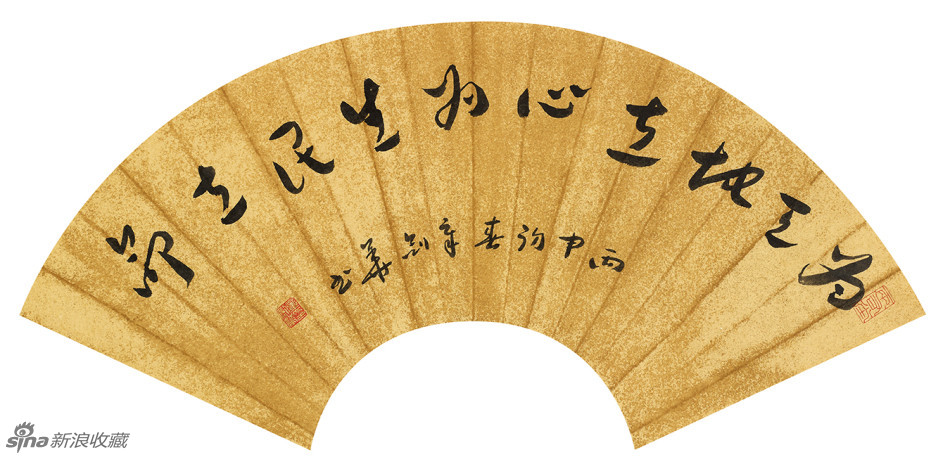 为天地立心为生民立命
丙申初春章剑華书
sina新浪收藏